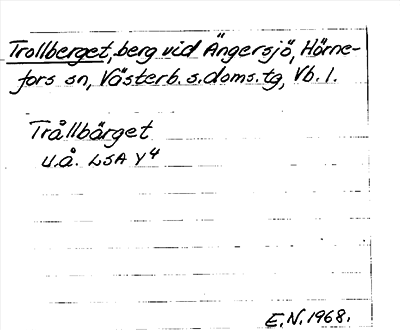 Trollberget, berg vid Ängersjö, Hörne-
fors sn, Västerb. s. doms. tg, Vb. l.
Trållbärget
u.å. LSA Y4
E.N. 1968.